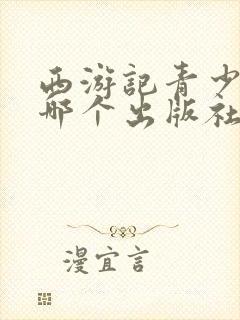 西游记青少
哪个出版社
漫宜言